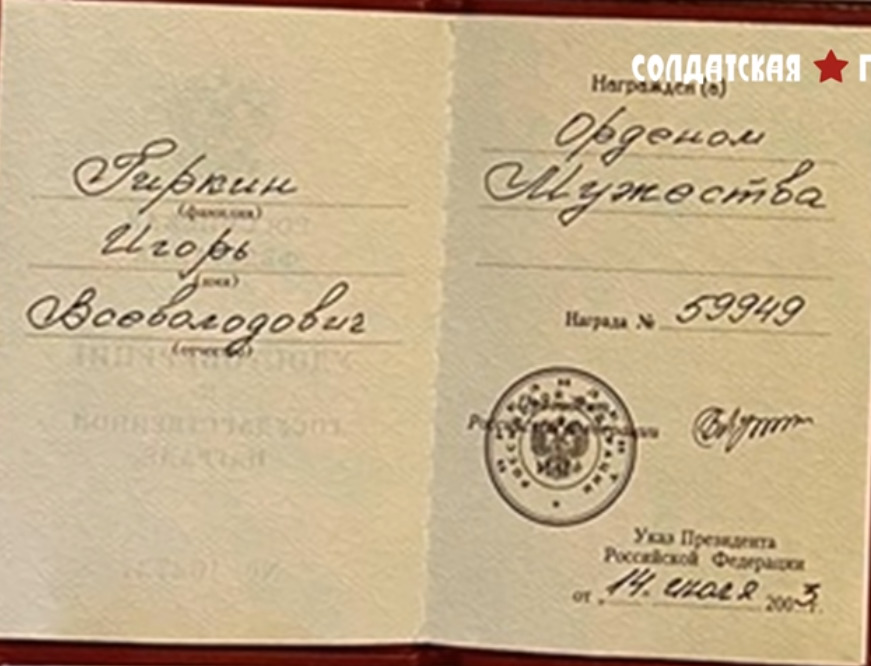 Гиркин
(фамилия)
Игорь
(имя)
Всеволодович
(отчество)
СОЛДАТСКАЯ ★ П
Награжден (а)
Орденом
Мужества
Награда № 59949
Российской Федерации
Указ Президента
Российской Федерации
от „14. июля 2003 г.